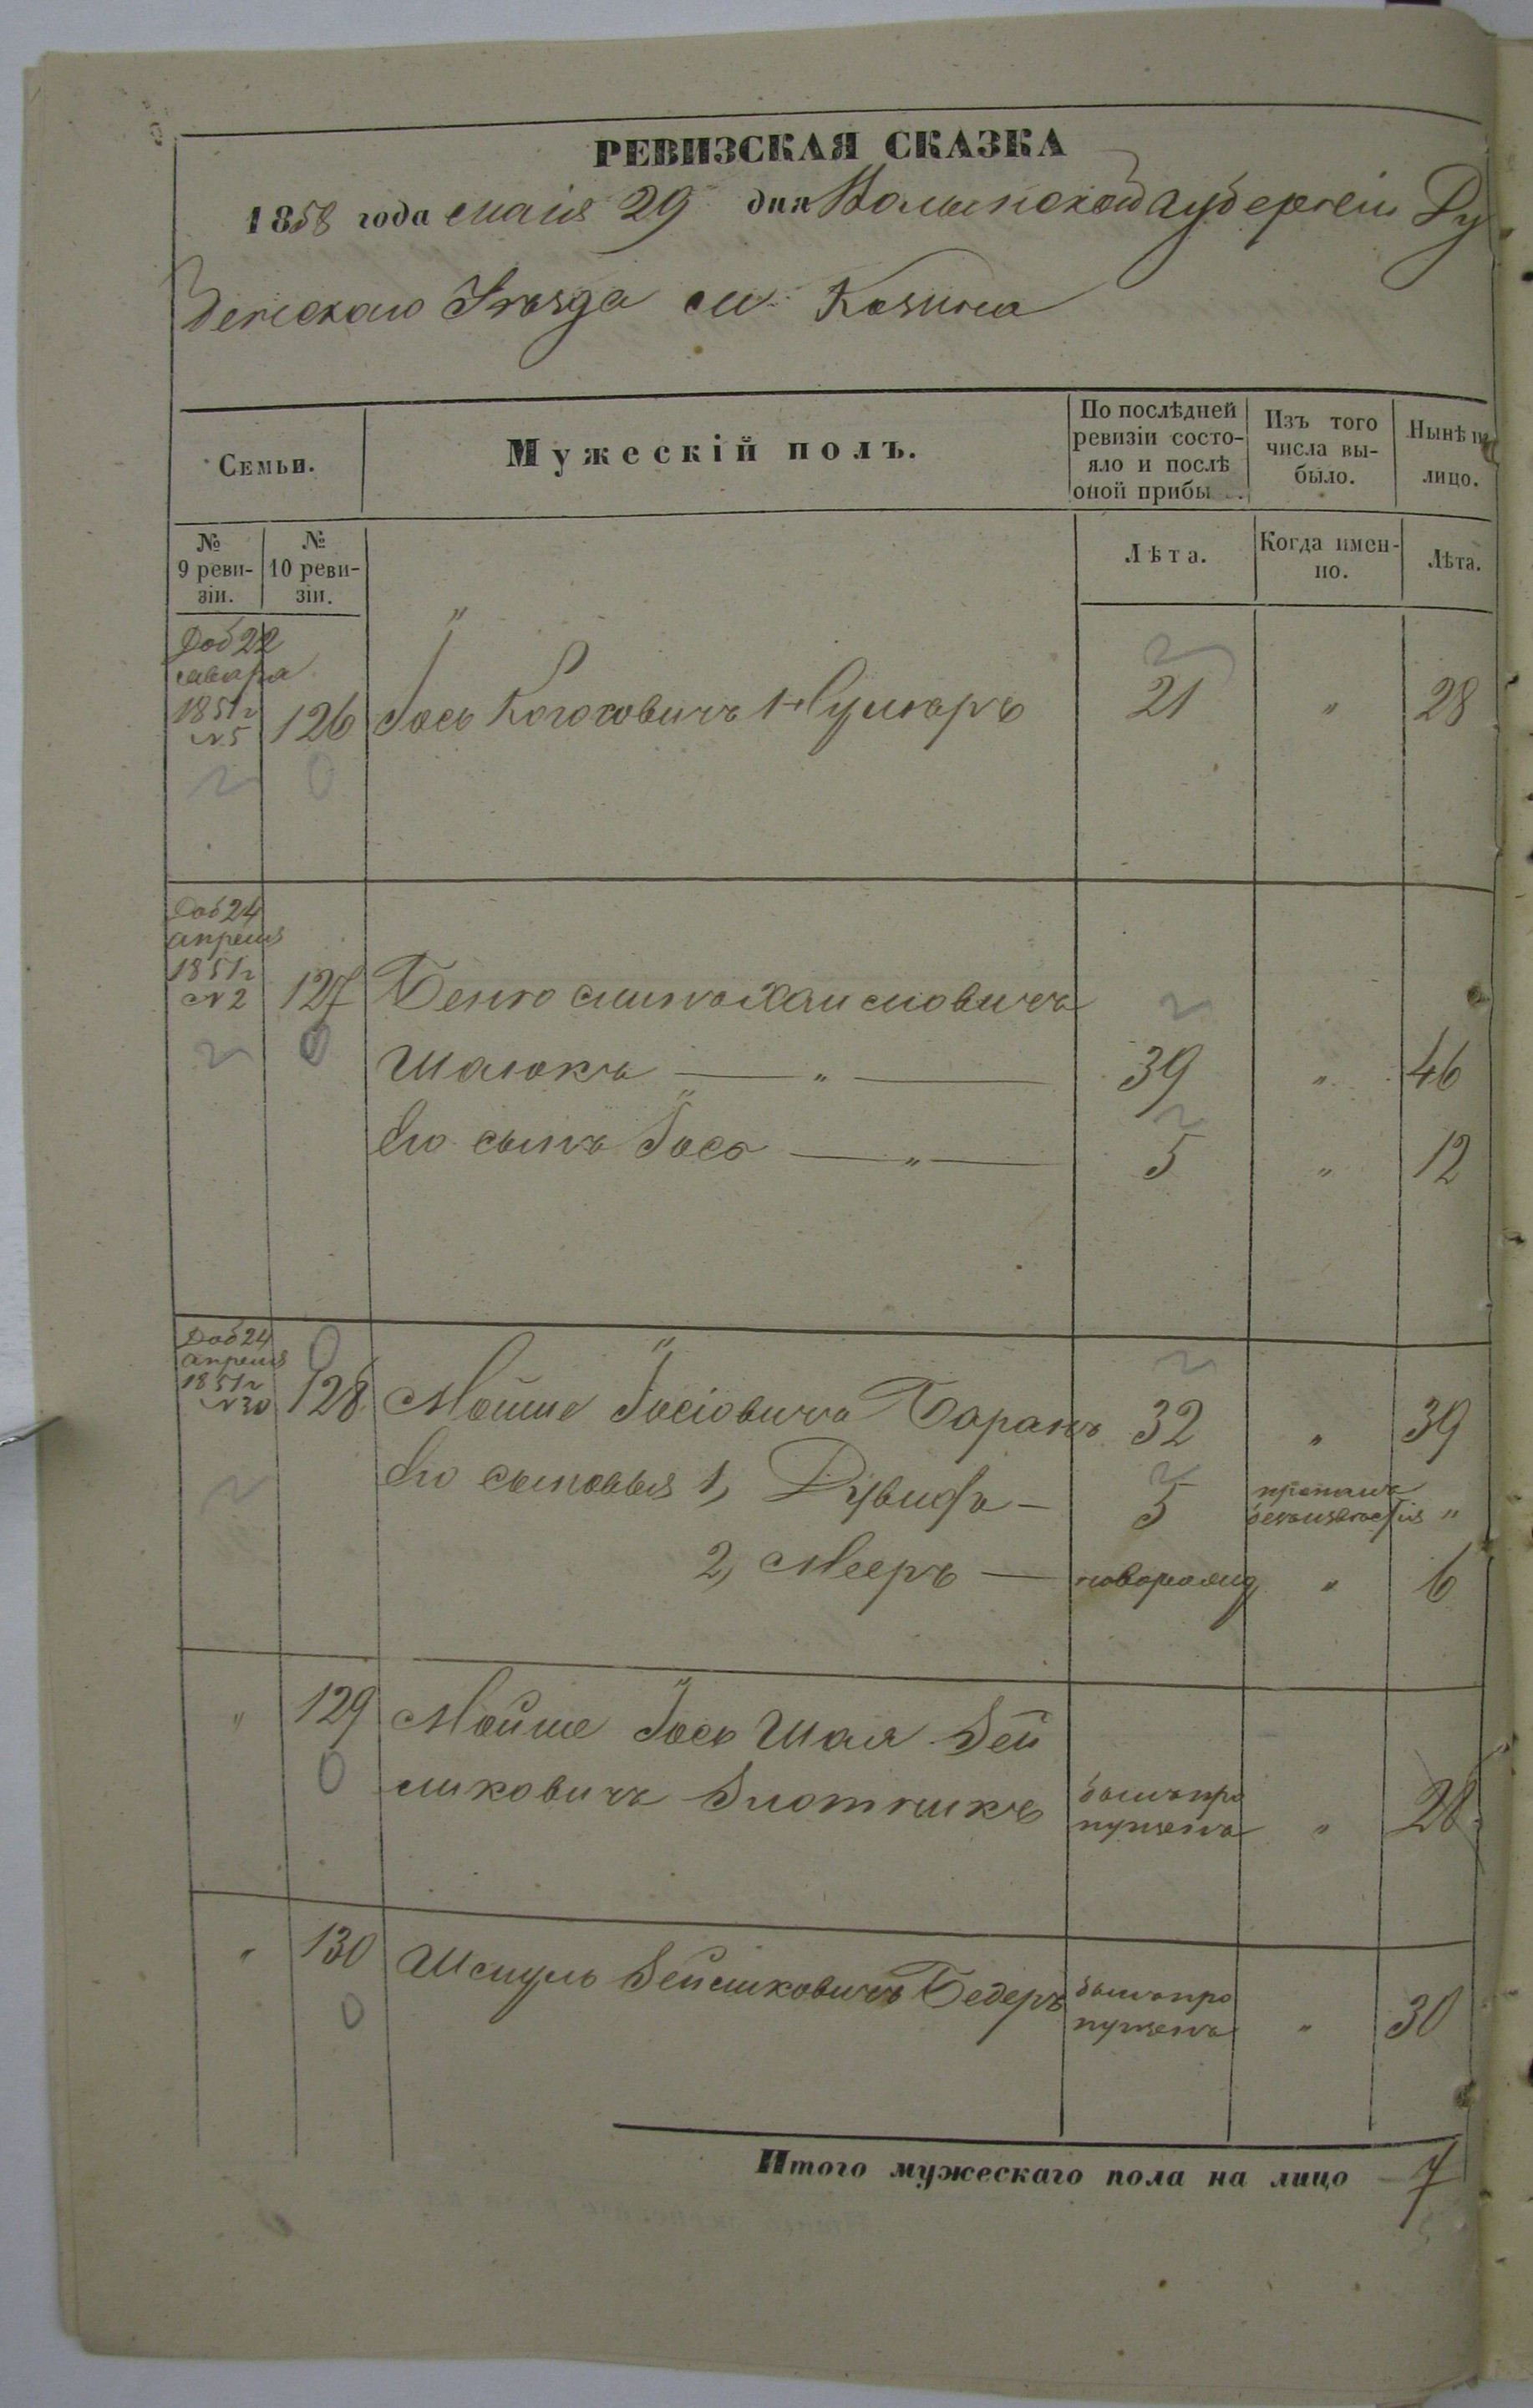 РЕВИЗСКАЯ СКАЗКА
1858 года маія 29 дня Волынской Губерніи Ду
бенскаго Уѣзда м. Козина
Семьи.
Мужескій полъ.
По послѣдней ревизіи состо-
яло и послѣ
оной прибы
Изъ того
числа вы-
было.
Нынѣ на
лицо.
№
9 реви-
зіи.
№
10 реви-
зіи.
Лѣта.
Когда имен-
но.
Лѣта.
Доб 22
1851 г
№ 5
126 Іось 21 " 28
Доб 24
апреля
1851 г
№ 2
127 Беньюминъ Хаимовичъ
Шалюкъ — " — 39 " 46
Его сынъ Іось — " — 5 " 12
Доб 24
апреля
1851 г
№ 30
128 Мойше Іосіовичъ Баранъ 32 " 39
Его сыновья 1, Дувидъ — 5 пропалъ
безъизвестія "
2, Мееръ — новорожд " 6
" 129 Мойше Іось Шая Зей
ликовичъ Злотникъ былъ про
пущенъ " 28
" 130 Шмуль Зейликовичъ Бедеръ былъ про
пущенъ " 30
Итого мужескаго пола на лицо 7